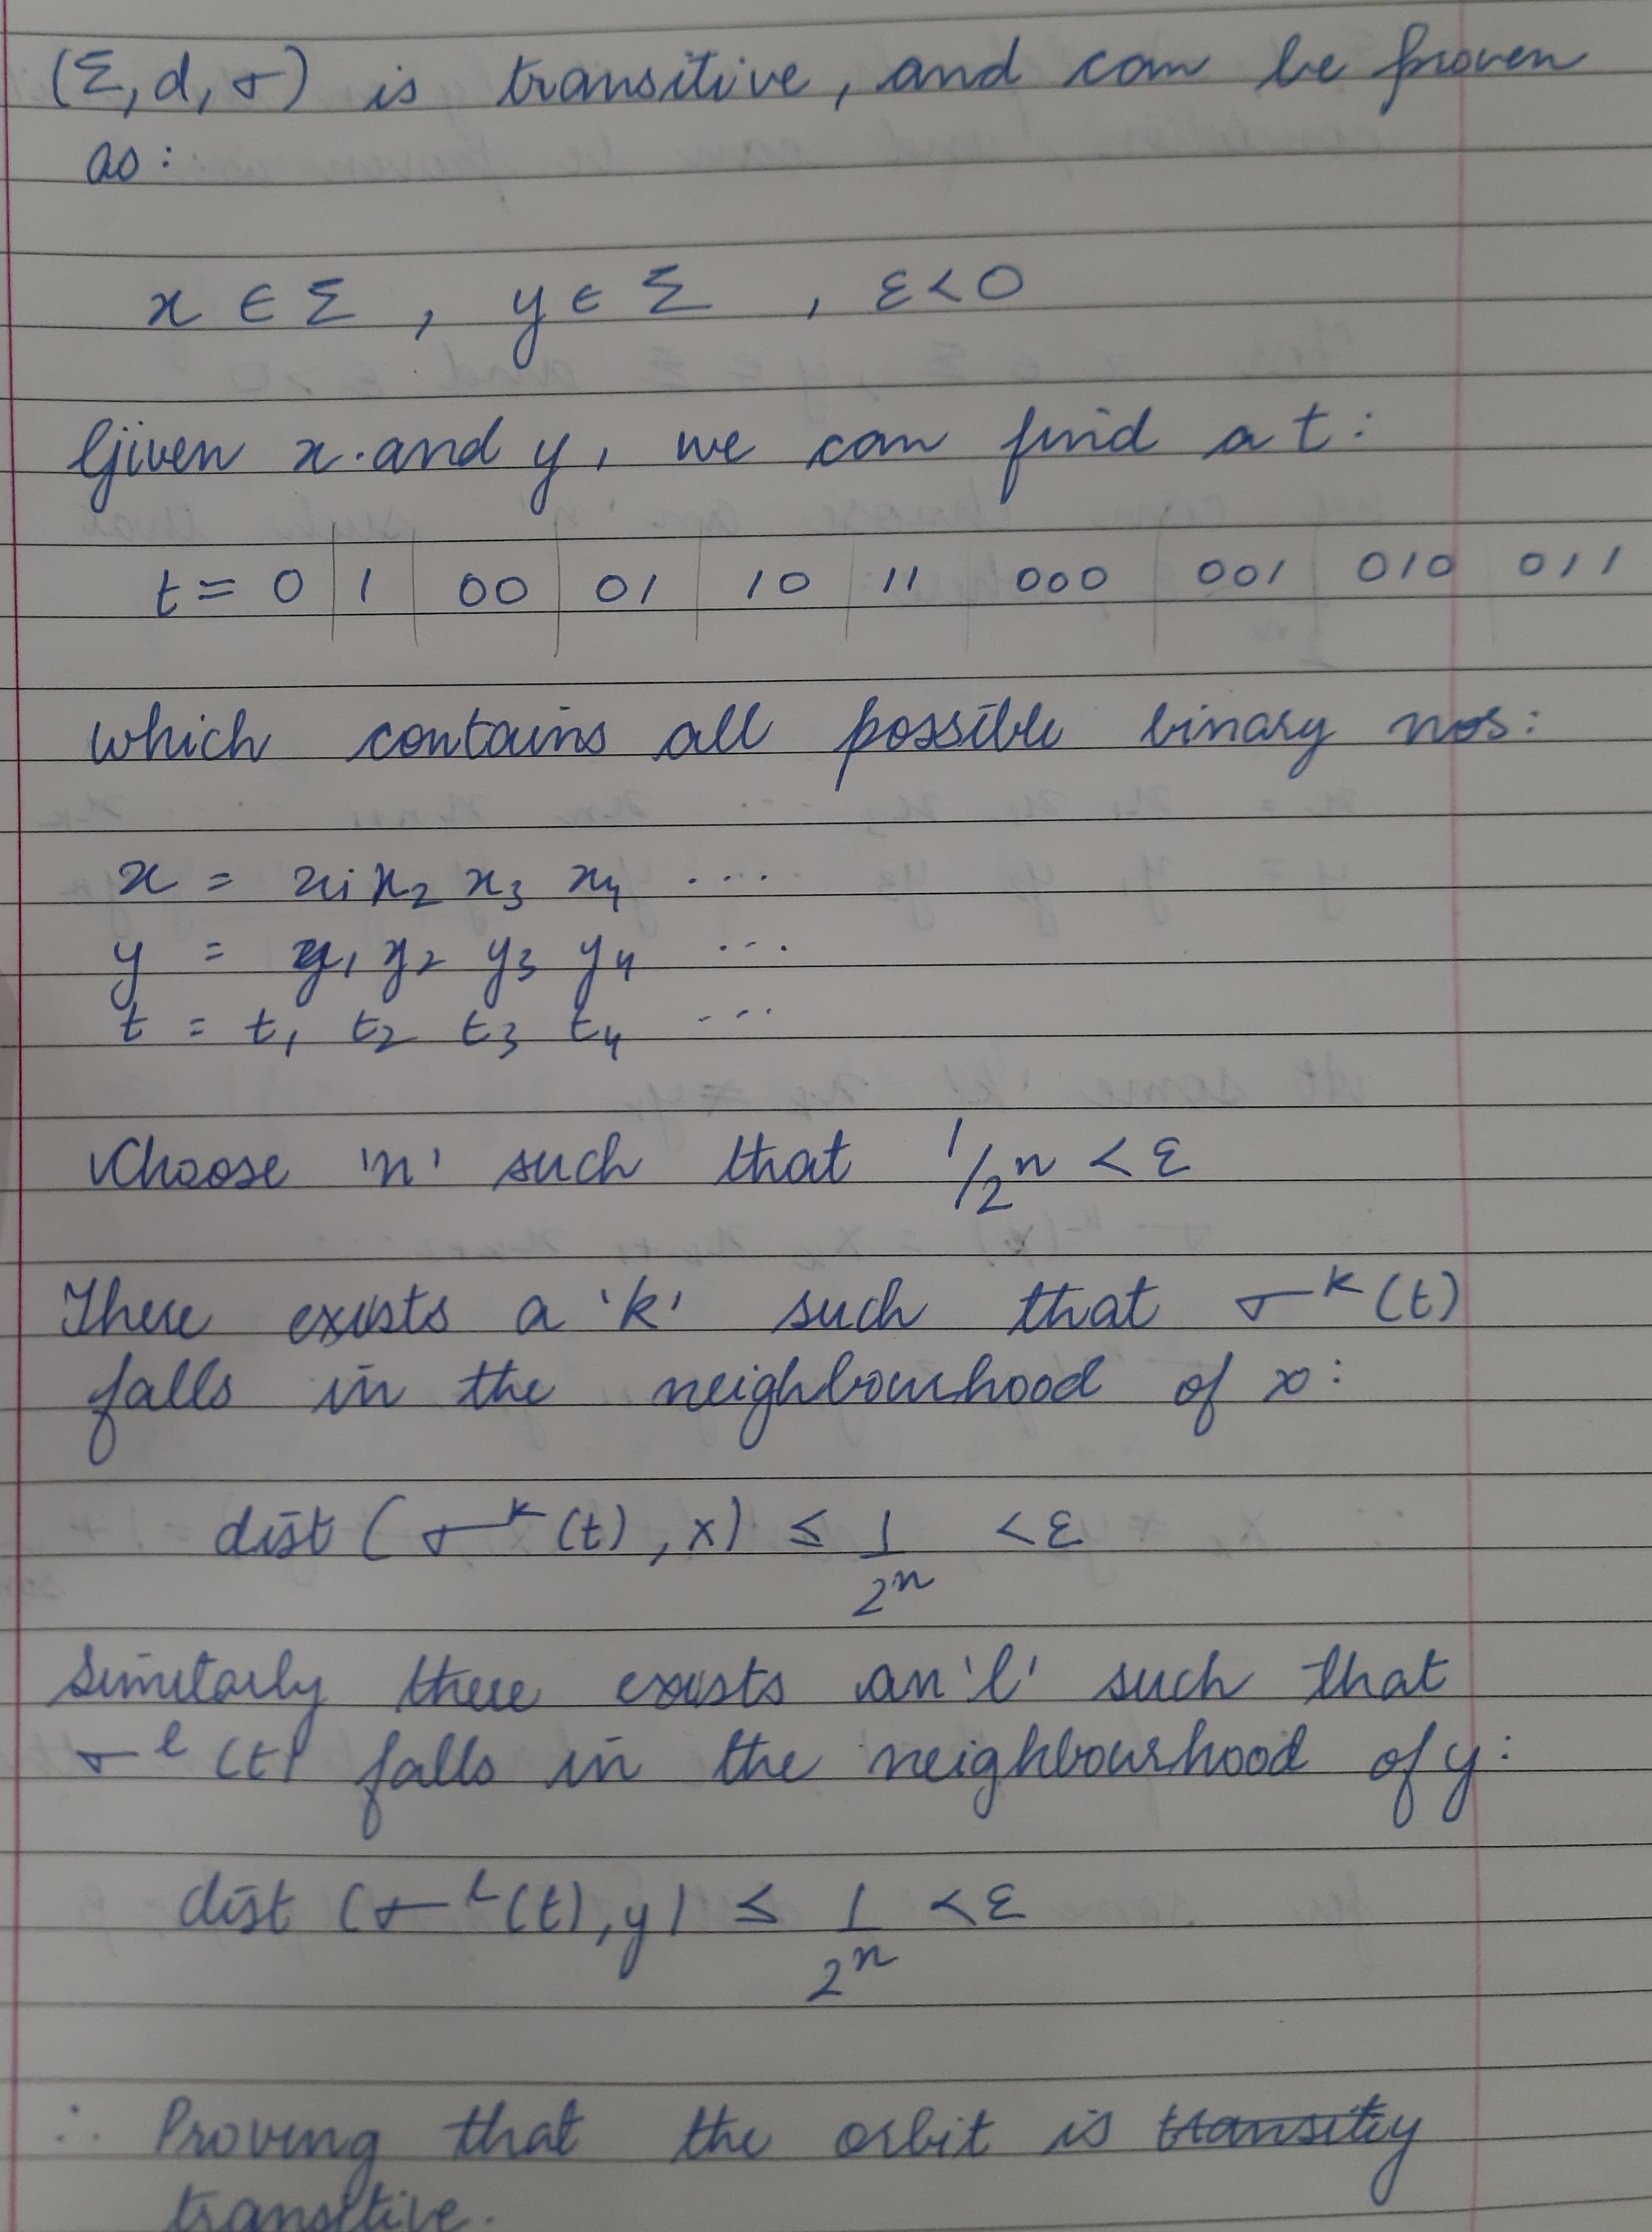 (Σ, d, σ) is transitive, and can be proven
as:
x ∈ Σ , y ∈ Σ , ε < 0
Given x and y, we can find a t:
t = 0 | 1 | 00 | 01 | 10 | 11 000 001 010 011
which contains all possible binary nos:
x = x₁ x₂ x₃ x₄ ....
y = y₁ y₂ y₃ y₄ ...
t = t₁ t₂ t₃ t₄ ...
Choose 'n' such that 1/2ⁿ < ε
There exists a 'k' such that σᵏ(t)
falls in the neighbourhood of x:
dist (σᵏ(t), x) ≤ 1/2ⁿ < ε
Similarly there exists an 'l' such that
σˡ(t) falls in the neighbourhood of y:
dist (σᴸ(t), y) ≤ 1/2ⁿ < ε
∴ Proving that the orbit is
transitive.